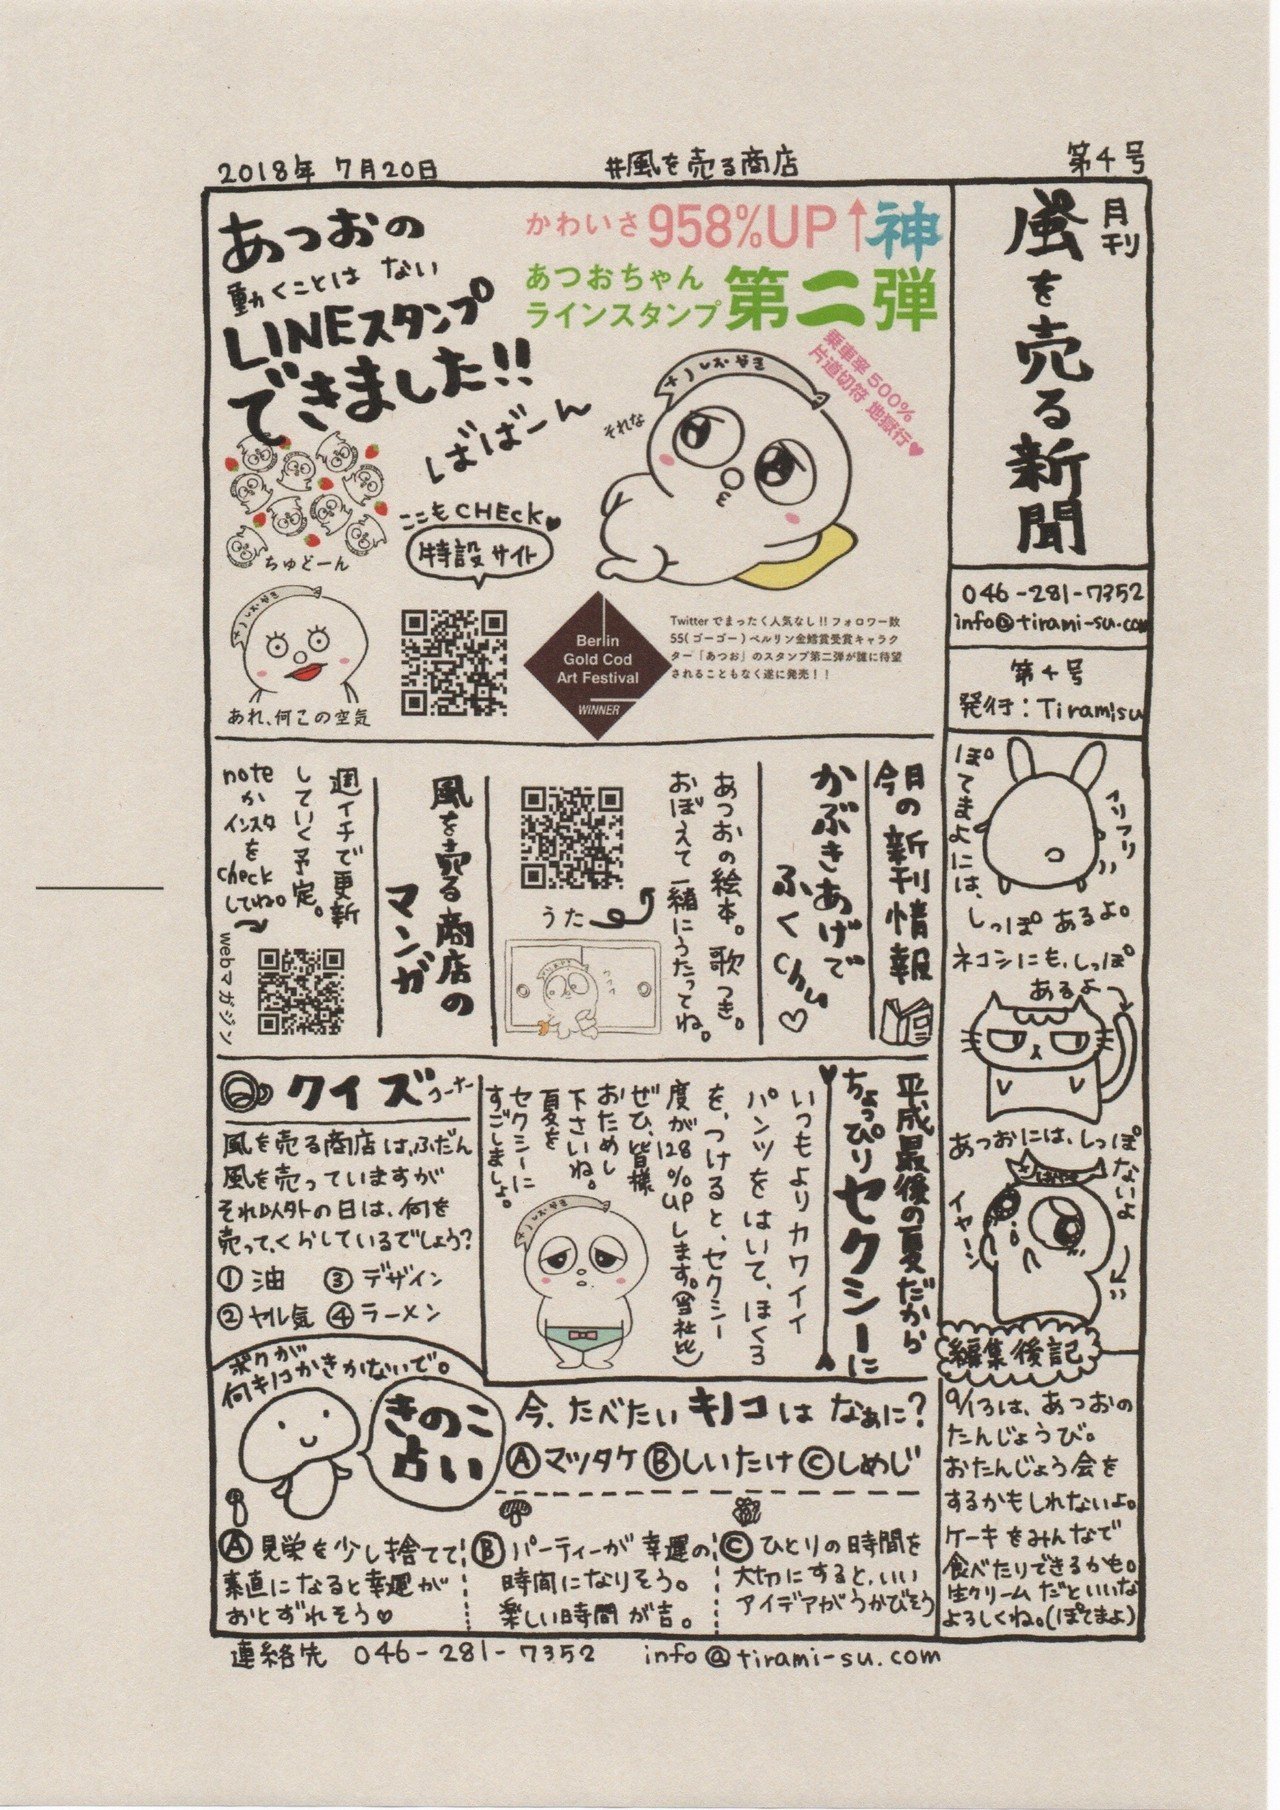 2018年 7月20日
#風を売る商店
第4号
月刊
風を売る新聞
046-281-7352
info@tirami-su.com
第4号
発行：Tiramisu
あつおの
動くことは ない
LINEスタンプ
できました!!
ばばーん
かわいさ 958%UP↑神
あつおちゃん
ラインスタンプ 第二弾
乗車率 500%
片道切符 地獄行♥
それな
ちゅどーん
ここもCHECK♥
特設サイト
あれ、何この空気
Berlin
Gold Cod
Art Festival
WINNER
Twitterでまったく人気なし!!フォロワー数
55(ゴーゴー)ベルリン金鱈賞受賞キャラク
ター「あつお」のスタンプ第二弾が誰に待望
されることもなく遂に発売！！
ぽてまよには、
しっぽ あるよ。
フリフリ
ネコシにも、しっぽ
あるよ
あつおには、しっぽ
ないよ
イヤーン
今日の新刊情報
かぶきあげで
ふくchu♡
あつおの絵本。歌つき。
おぼえて一緒にうたってね。
うた
風を売る商店の
マンガ
週イチで更新
していく予定。
note
か
インスタ
を
check
してね。
webマガジン
平成最後の夏だから
ちょっぴりセクシーに
いつもよりカワイイ
パンツをはいて、ほくろ
を、つけると、セクシー
度が128%UPします。(当社比)
ぜひ、皆様
おためし
下さいね。
夏を
セクシーに
すごしましょ。
クイズコーナー
風を売る商店は、ふだん
風を売っていますが
それ以外の日は、何を
売って、くらしているでしょう?
①油 ③デザイン
②ヤル気 ④ラーメン
ボクが
何キノコかきかないで。
きのこ
占い
今、たべたいキノコは なぁに?
Ⓐマツタケ Ⓑしいたけ Ⓒしめじ
Ⓐ見栄を少し捨てて
素直になると幸運が
おとずれそう♡
Ⓑパーティーが幸運の
時間になりそう。
楽しい時間が吉。
Ⓒひとりの時間を
大切にすると、いい
アイデアがうかびそう
編集後記
9/13は、あつおの
たんじょうび。
おたんじょう会を
するかもしれないよ。
ケーキをみんなで
食べたりできるかも。
生クリームだといいな
よろしくね。(ぽてまよ)
連絡先 046-281-7352 info@tirami-su.com